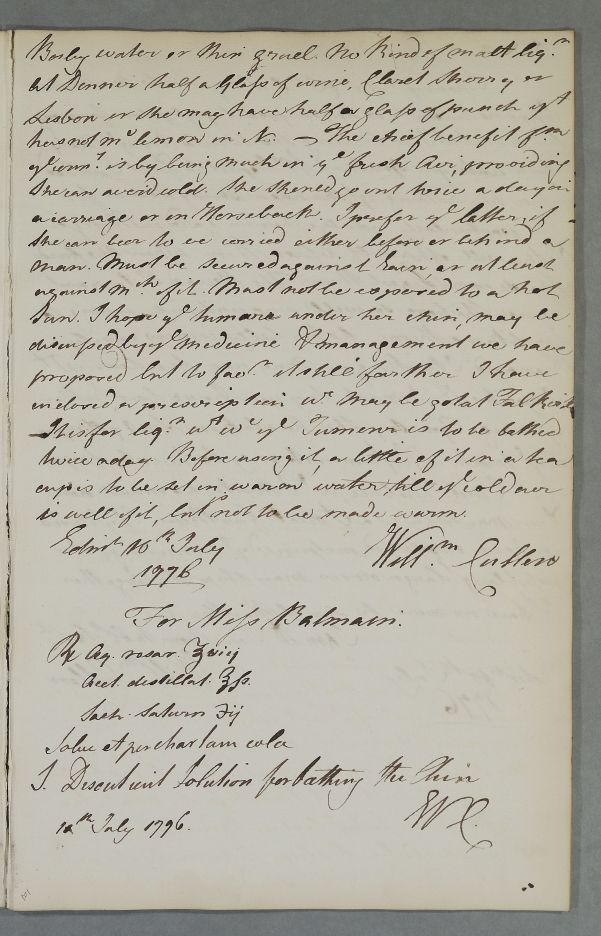 Barley water or thin gruel. No kind of malt liq.r
At Dinner half a Glass of wine, Claret Sherry or
Lisbon or she may have half a glass of punch yt
has not mh lemon in it. — The chief benefit from
ye count. is by being much in ye fresh Air, providing
She can avoid cold. She should go out twice a day in
a carriage or on Horseback. I prefer ye latter, if
She can bear to be carried either before or behind a
man. Must be secured against rain or at least
against mch of it. Must not be exposed to a hot
Sun. I hope ye tumour under her chin, may be
discussed by ye medicine & management we have
proposed but to favr it still farther I have
inclosed a prescription wh may be got at Falkirk
— It is for liqr wt wh ye Tumour is to be bathed
twice a day. Before using it, a little of it in a tea
cup is to be set in warm water till ye cold air
is well off, but is not to be made warm.
Edinr 10th July
1776
Willm Cullen
For Miss Balmain.
℞ Aq. rosar. ℥viij
Acet. distillat. ℥ſs.
Sach. Saturn ʒij
Solve et per chartam cola
S. Discutient Solution for bathing the Chin
10th July 1776.
W C.